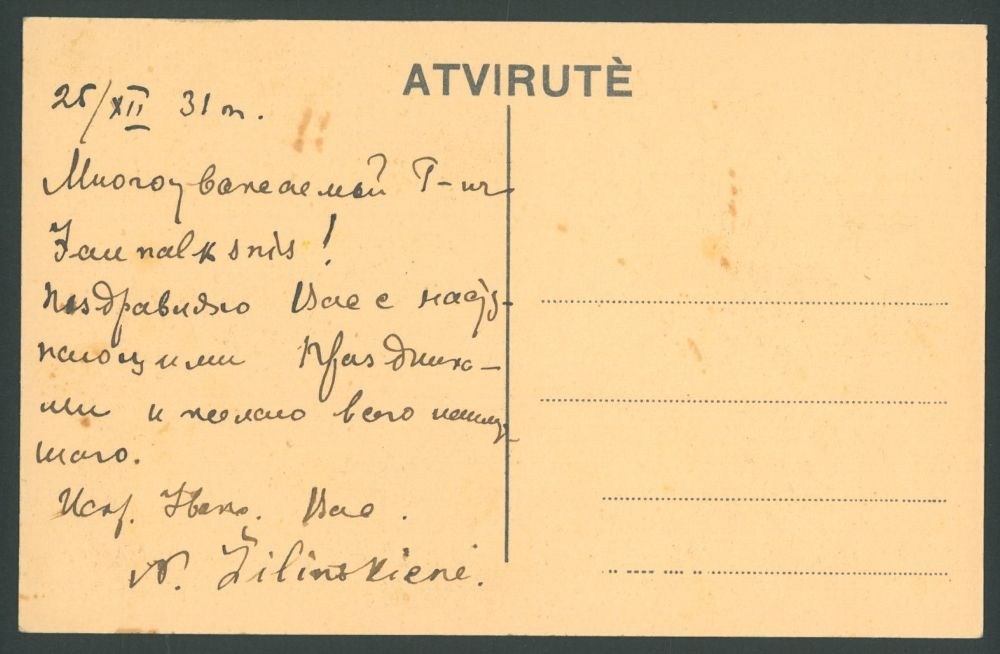 ATVIRUTÈ
25/XII 31 m.
Многоуважаемый Г-н
Jaunalksnis!
Поздравляю Вас с насту-
пающими Праздника-
ми и желаю всего наилуч-
шаго.
Искр. Уваж. Вас.
N. Žilinskienė.